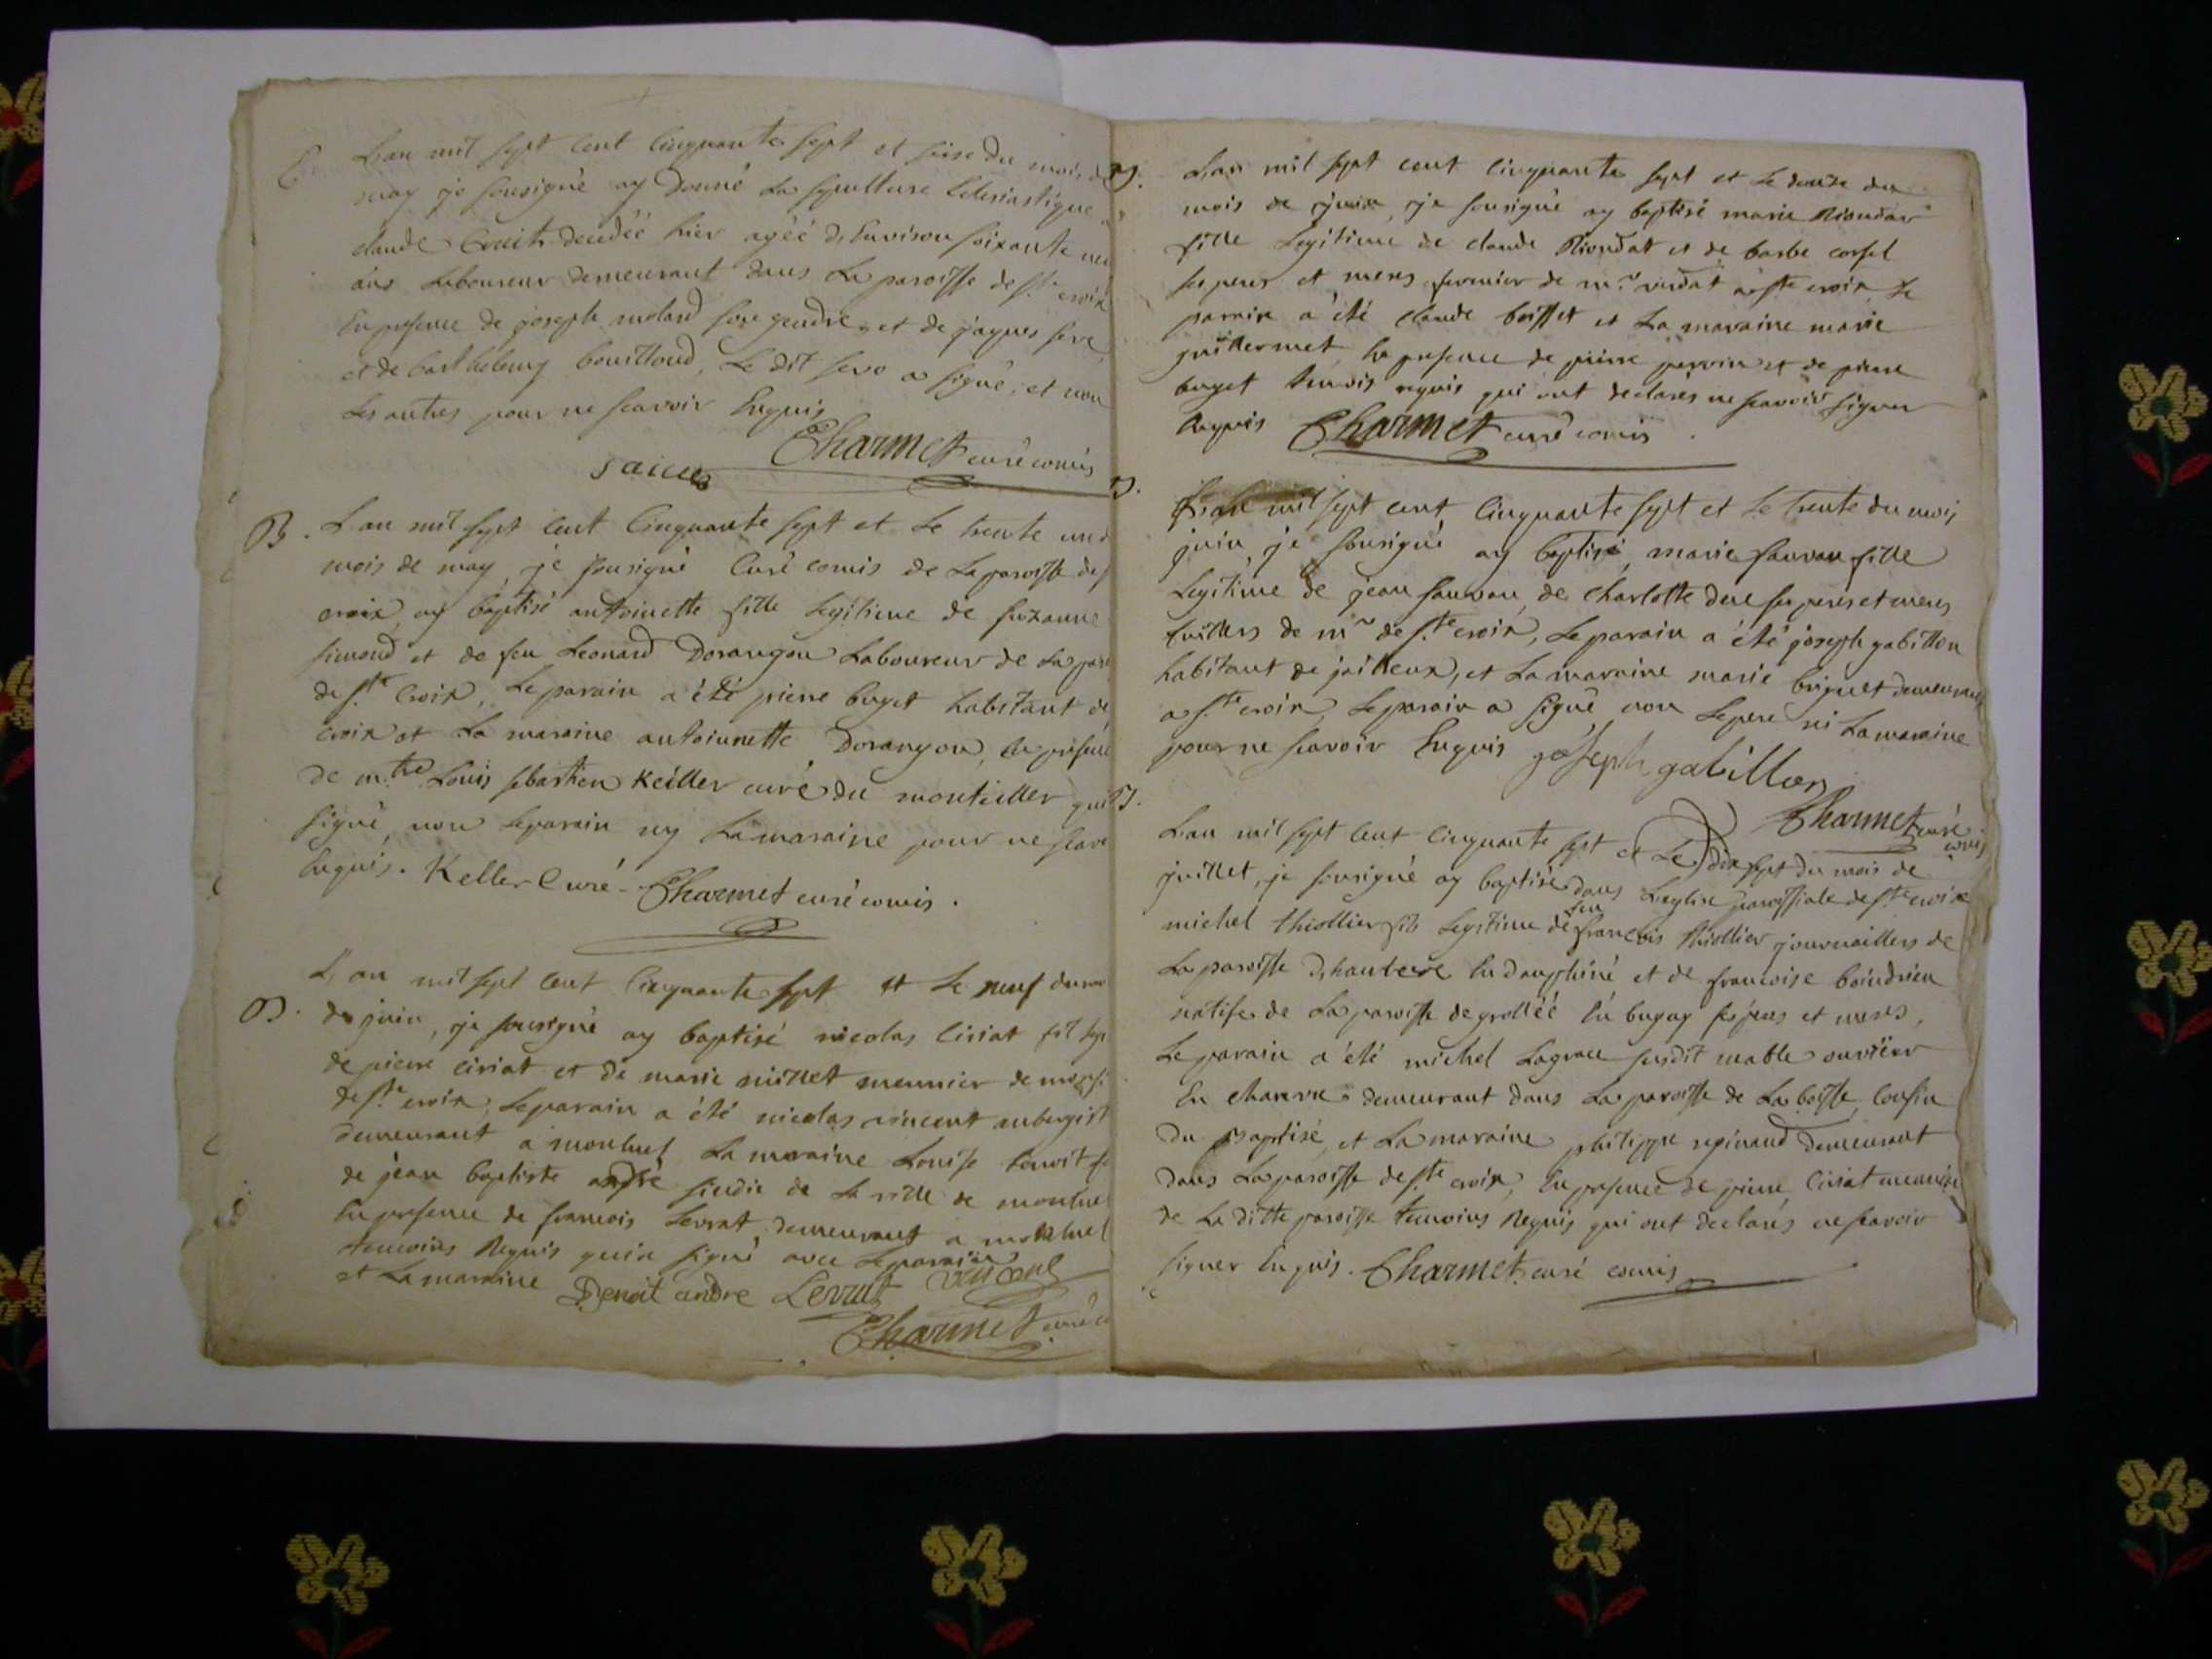 E L'an mil sept cent cinquante sept et seise du mois de
may je sousigné ay donné la sepulture Eclesiastique a
claude decedéé hier agéé d'Environ soixante neuf
ans Laboureur demeurant dans La paroisse de ste croix
En presence de joseph molard son gendre, et de jaques sere
et de barthelemy bouilloud, Le dit sere a signé, et non
Les autres pour ne scavoir Enquis
Charmet curé comis
B. L'an mil sept cent Cinquante sept et Le trente un d
mois de may, je sousigné Curé comis de La paroisse de s
croix, ay baptisé antoinette fille Legitime de suzanne
simond et de feu Leonard Dorangeon Laboureur de La paro
de ste Croix, Le parain a été pierre buget habitant de
croix et La maraine antoinette Dorangeon, En presence
de mtre Louis sebastien Keiller curé du montellier qui
signé, non Leparain ny Lamaraine pour ne scavo
Enquis. Keller Curé - Charmet curé comis.
B. L'an mil sept cent Cinquante sept et Le neuf du mo
de juin, je sousigné ay baptisé nicolas Ciriat fil legi
de pierre ciriat et de marie millet meunier de
de ste croix, Leparain a été nicolas vincent aubergist
demeurant a montluel La maraine Louise benoit fe
de jean baptiste andré sindic de La ville de montluel
En presence de francois Levrat demeurant a montluel
temoins Requis qui a signé avec Leparain
et La maraine Benoit andre Levrat vincent
Charmet curé co
B. L'an mil sept cent Cinquante sept et Le douze du
mois de juin, je sousigné ay baptisé marie Riondat
fille Legitime de claude Riondat et de barbe
ses peres et meres fermier de mr a ste croix, Le
parain a été claude boisset et La maraine marie
guillermet En presence de pierre perrin et de pierre
buget temois requis qui ont declarés ne scavoir signer
Enquis Charmet curé comis.
B. L'an mil sept cent Cinquante sept et Le trente du mois
juin, je sousigné ay baptisé, marie sauvan fille
Legitime de jean sauvan, de charlotte ses peres et meres
de mr de ste croix, Le parain a été joseph gabillon
habitant de jailleux, et La maraine marie briguet demeurant
a ste croix, Leparain a signé non Lepere ni Lamaraine
pour ne scavoir Enquis joseph gabillon
Charmet curé
comis
B. L'an mil sept Cent Cinquante sept et Le dix sept du mois de
juillet, je sousigné ay baptisé dans L'eglise paroissiale de ste croix
michel thiollier fils Legitime de feu francois thiollier journaillers de
La paroisse d'hauterive En dauphiné et de francoise boindrieu
natifs de La paroisse de grolléé En bugay ses peres et meres,
Le parain a été michel Lagrace susdit ouvrier
En chanvre demeurant dans La paroisse de La boisse, Cousin
Du Baptisé, et La maraine philippe reginaud demeurant
dans La paroisse de ste croix, En presence de pierre Ciriat meunier
de La ditte paroisse temoins Requis qui ont declarés ne scavoir
signer Enquis. Charmet curé comis